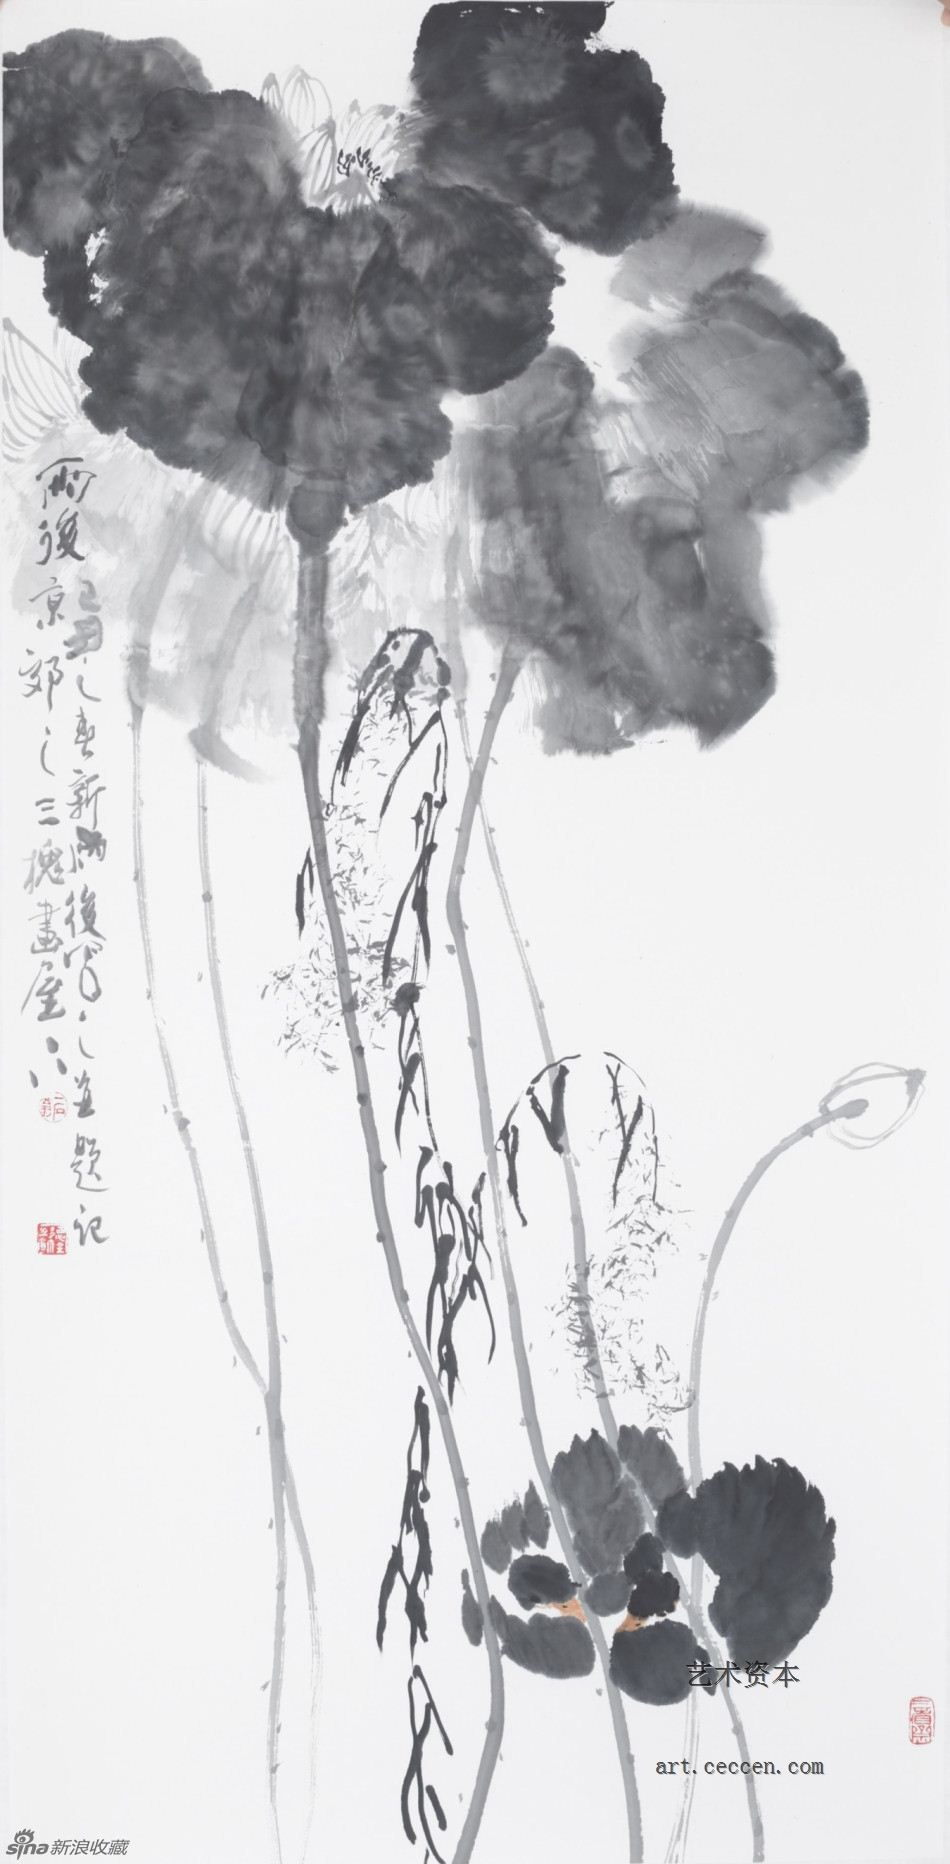 雨後
己丑之春新雨後寫之並題記
京郊之三槐畫屋下
艺术资本
art.ceccen.com
sina新浪收藏